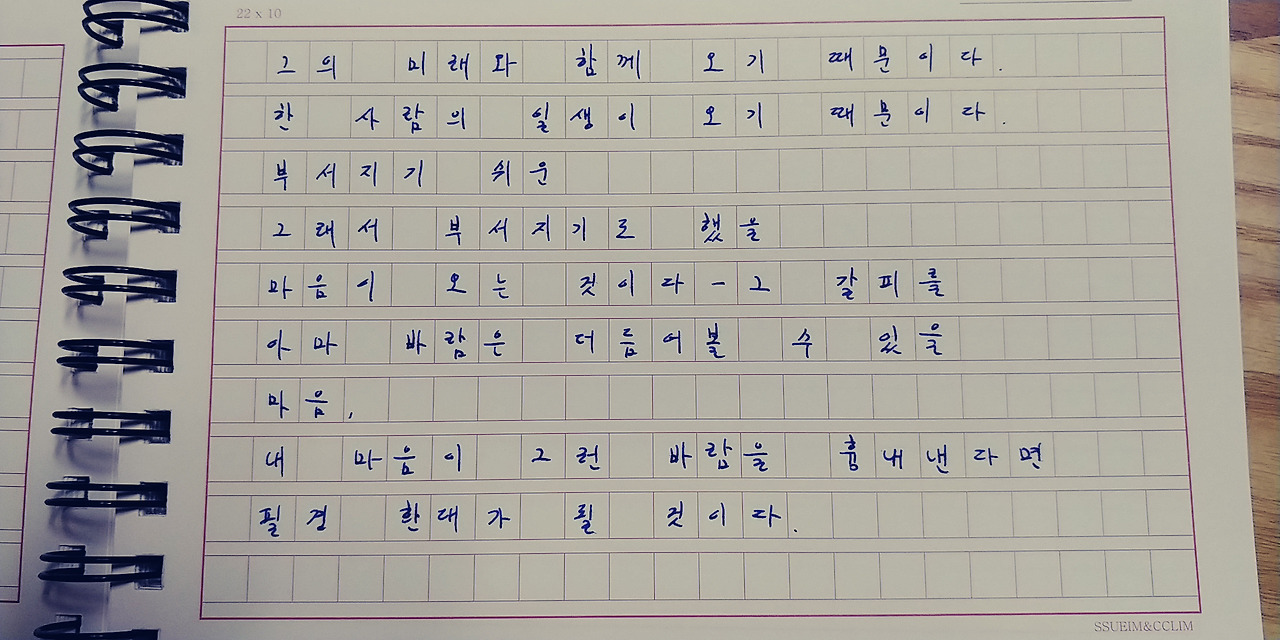 22 x 10
그의 미래와 함께 오기 때문이다.
한 사람의 일생이 오기 때문이다.
부서지기 쉬운
그래서 부서지기로 했을
마음이 오는 것이다-그 갈피를
아마 바람은 더듬어볼 수 있을
마음,
내 마음이 그런 바람을 흉내낸다면
필경 환대가 될 것이다.
SSUEIM&CCLIM